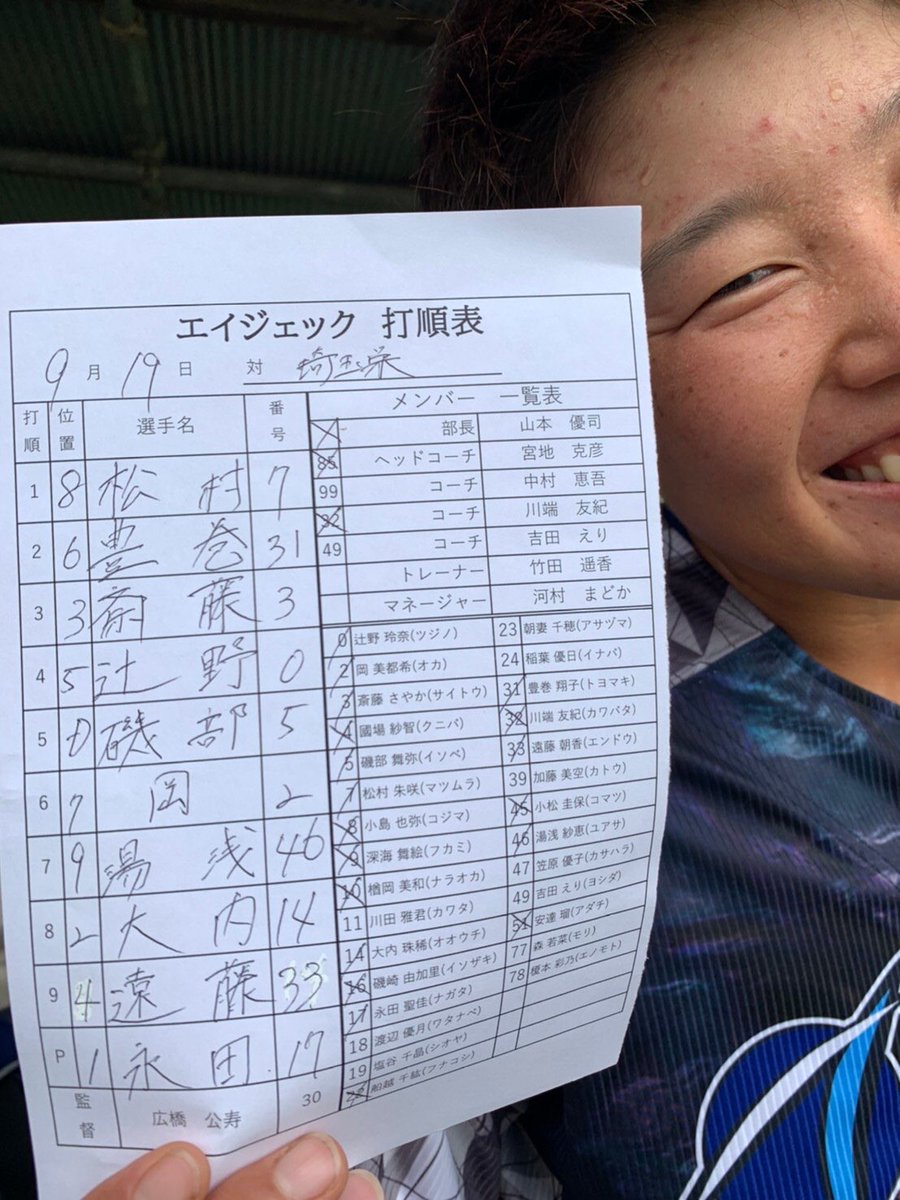 エイジェック 打順表
9月19日 対 埼玉栄
打順 位置 選手名 番号
1 8 松村 7
2 6 豊巻 31
3 3 斎藤 3
4 5 辻野 0
5 D 磯部 5
6 7 岡 2
7 9 湯浅 46
8 2 大内 14
9 4 遠藤 33
P 1 永田 17
監督 広橋 公寿 30
メンバー 一覧表
部長 山本 優司
85 ヘッドコーチ 宮地 克彦
99 コーチ 中村 恵吾
32 コーチ 川端 友紀
49 コーチ 吉田 えり
トレーナー 竹田 遥香
マネージャー 河村 まどか
0 辻野 玲奈(ツジノ)
2 岡 美都希(オカ)
3 斎藤 さやか(サイトウ)
4 國場 紗智(クニバ)
5 磯部 舞弥(イソベ)
7 松村 朱咲(マツムラ)
8 小島 也弥(コジマ)
9 深海 舞絵(フカミ)
10 楢岡 美和(ナラオカ)
11 川田 雅君(カワタ)
14 大内 珠稀(オオウチ)
16 磯崎 由加里(イソザキ)
17 永田 聖佳(ナガタ)
18 渡辺 優月(ワタナベ)
19 塩谷 千晶(シオヤ)
船越 千紘(フナコシ)
23 朝妻 千穂(アサヅマ)
24 稲葉 優日(イナバ)
31 豊巻 翔子(トヨマキ)
32 川端 友紀(カワバタ)
33 遠藤 朝香(エンドウ)
39 加藤 美空(カトウ)
45 小松 圭保(コマツ)
46 湯浅 紗恵(ユアサ)
47 笠原 優子(カサハラ)
49 吉田 えり(ヨシダ)
51 安達 瑠(アダチ)
77 森 若菜(モリ)
78 榎本 彩乃(エノモト)